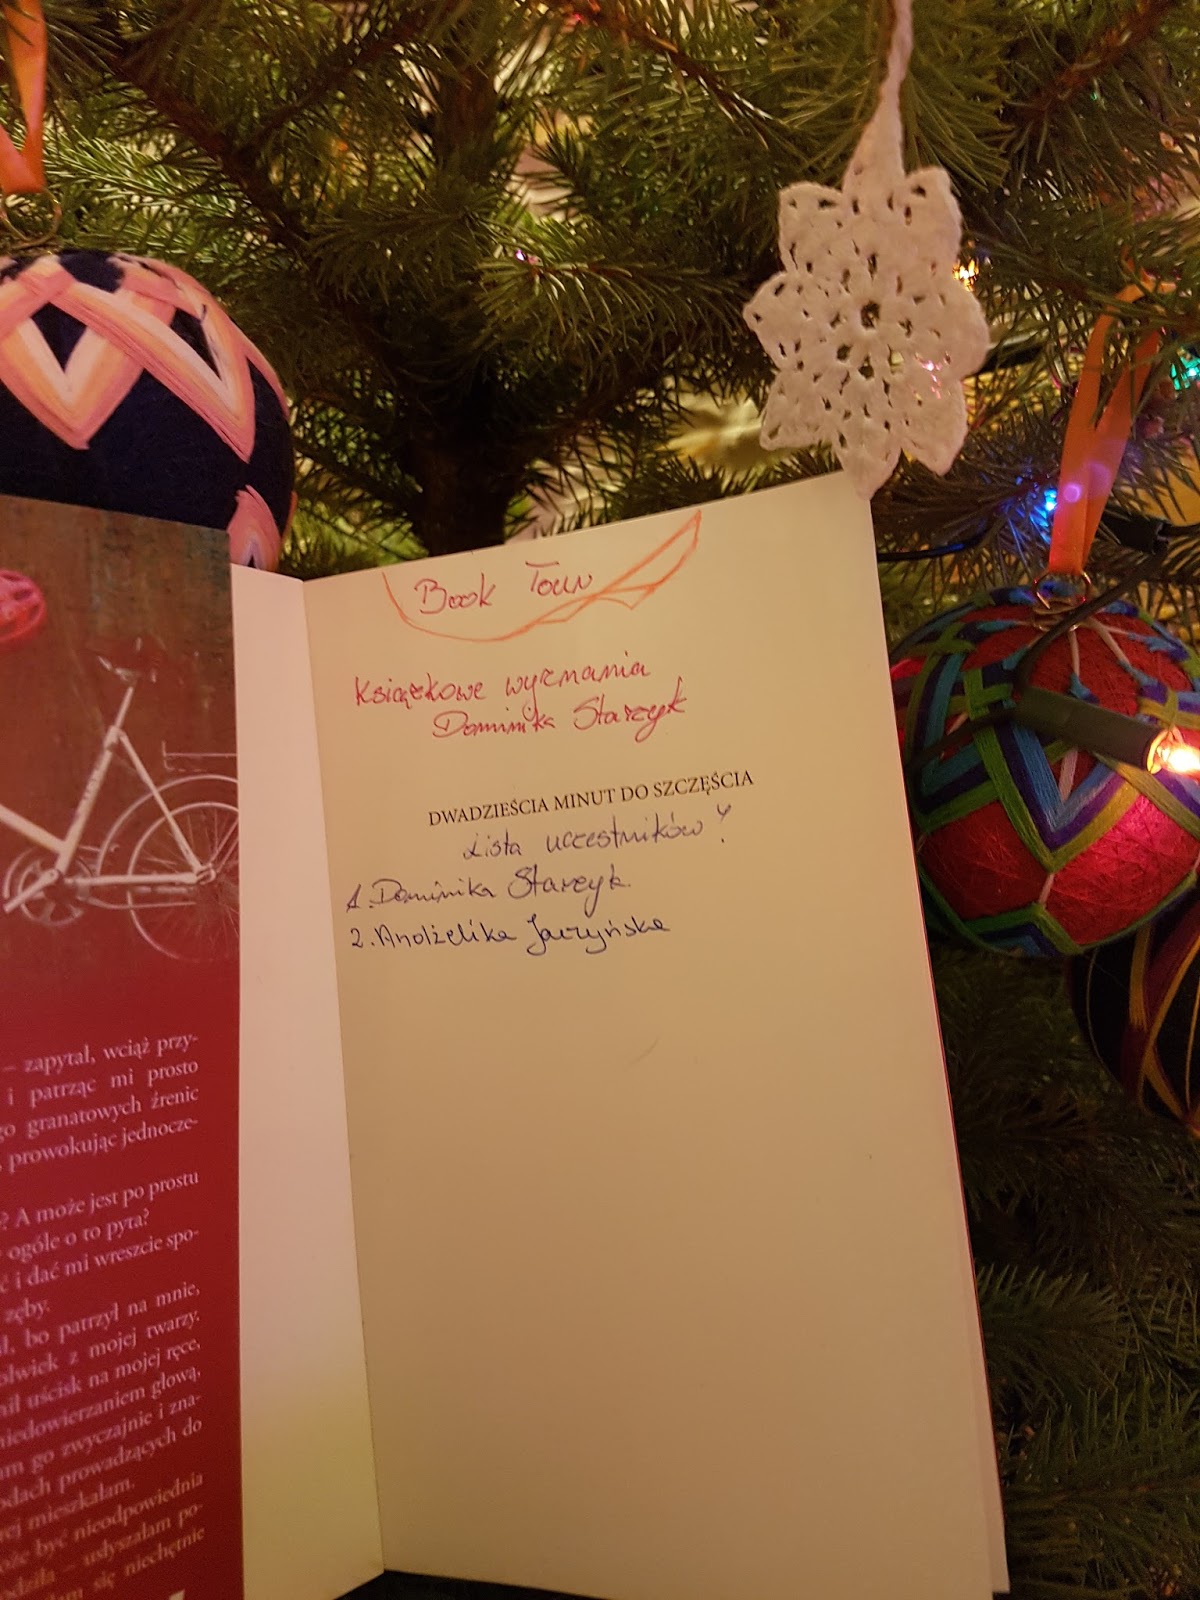 – zapytał, wciąż przy-
i patrząc mi prosto
go granatowych źrenic
, prowokując jednocze-
? A może jest po prostu
ogóle o to pyta?
ć i dać mi wreszcie spo-
zęby.
ął, bo patrzył na mnie,
olwiek z mojej twarzy.
nił uścisk na mojej ręce,
niedowierzaniem głową,
am go zwyczajnie i zna-
odach prowadzących do
rej mieszkałam.
oże być nieodpowiednia
odziła – usłyszałam po-
łam się niechętnie
Book Tour
Książkowe wyznania
Dominika Starzyk
DWADZIEŚCIA MINUT DO SZCZĘŚCIA
Lista uczestników!
1. Dominika Starzyk.
2. Andżelika Jarzyńska